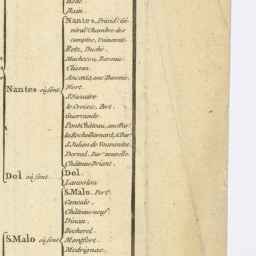 Blain.
Nantes, Présid. Gé
néral. Chambre des
comptes, Université.
Retz, Duché.
Machecou, Baronie.
Clisson.
Ancenis, anc. Baronie.
Nort.
S. Nazaire
le Croisic, Port.
Guerrande.
Pont Château, anc. Bar.
la Roche Bernard,
S. Julien de Vouvantes.
Derval. Bar. nouvelle.
Château Briant.
Nantes où sont
Dol où sont
Dol.
Lanvelon
S. Malo, Port.
Cancale.
Châteauneuf.
Dinan.
Becherel.
S. Malo où sont
Montfort.
Medrignac.